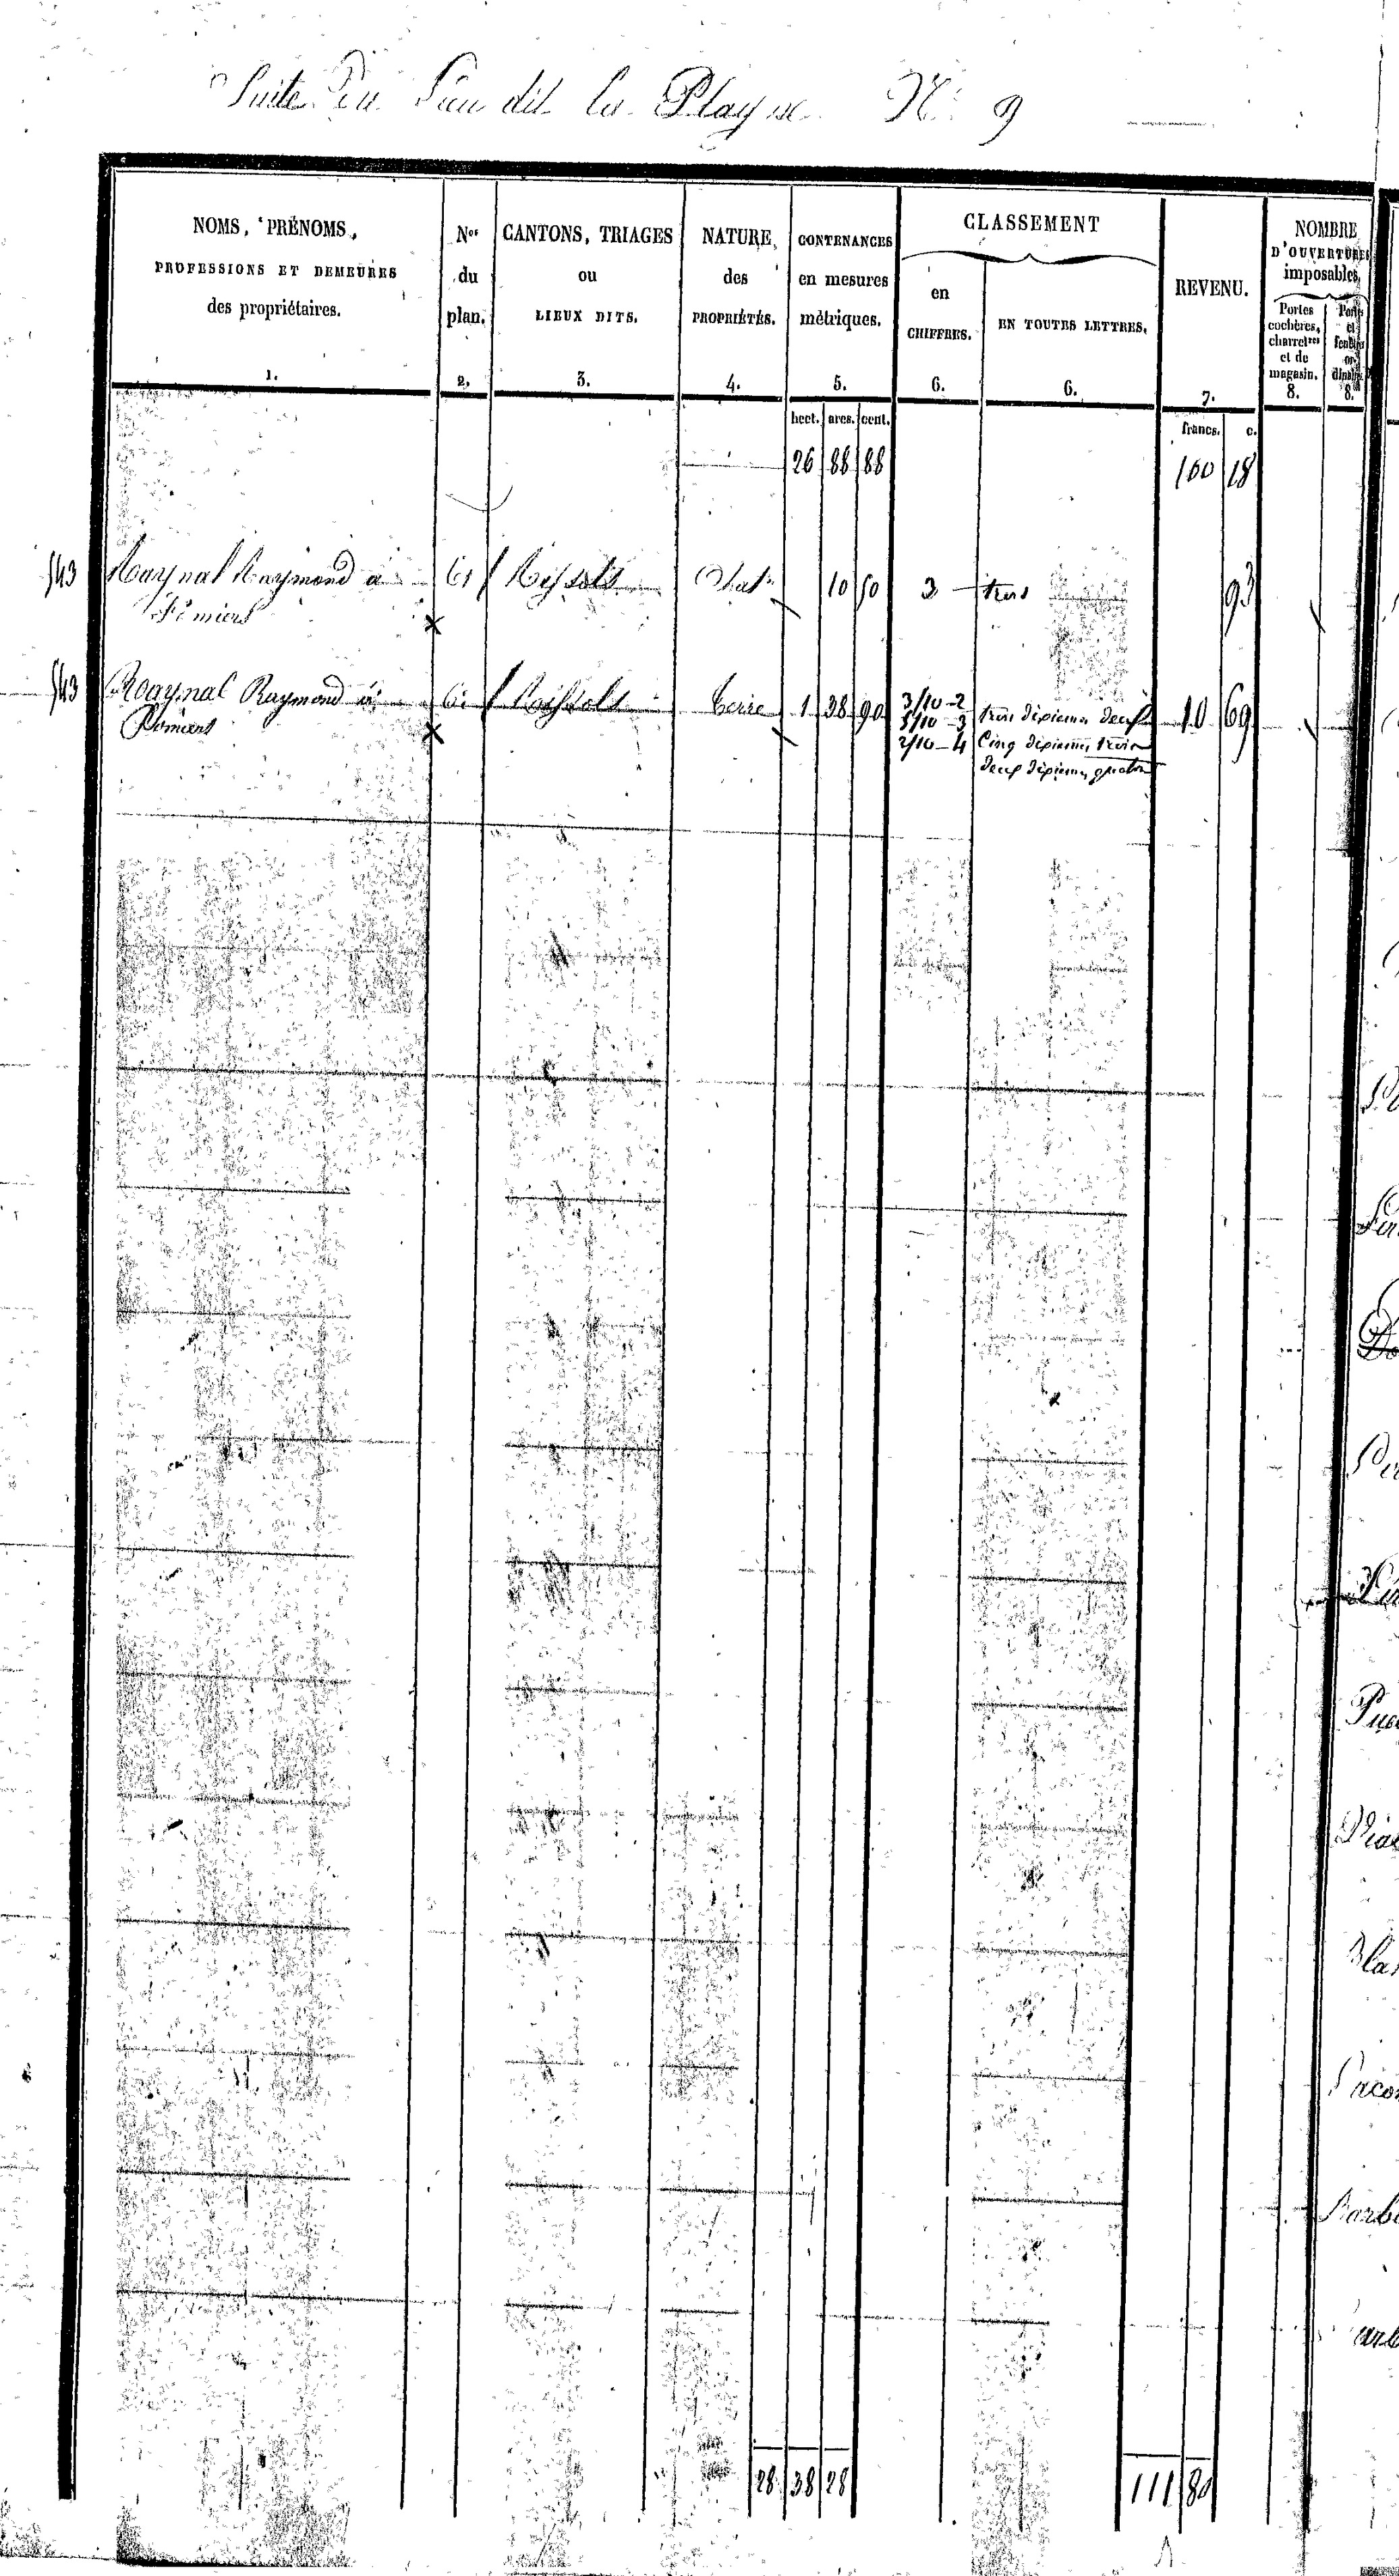 Suite Du Lieu dit La Playne N° 9
NOMS, PRÉNOMS,
PROFESSIONS ET DEMEURES
des propriétaires.
1.
Nos
du
plan.
2.
CANTONS, TRIAGES
ou
LIEUX DITS.
3.
NATURE
des
PROPRIÉTÉS.
4.
CONTENANCES
en mesures
métriques.
5.
CLASSEMENT
en
CHIFFRES.
6.
EN TOUTES LETTRES.
6.
REVENU.
7.
NOMBRE
D'OUVERTURES
imposables,
Portes
cochères,
charretres
et de
magasin.
8.
8.
hect. ares. cent. francs. c.
26 88 88 100 18
543 Raynal Raymond à 10 50 3 trois 93
543 Raynal Raymond à terre 1 38 90 3/10-2 trois dixièmes deux 10 69
Pomiers 5/10-3 Cinq dixièmes trois
2/10-4 deux dixièmes quatre
28 38 28 111 80